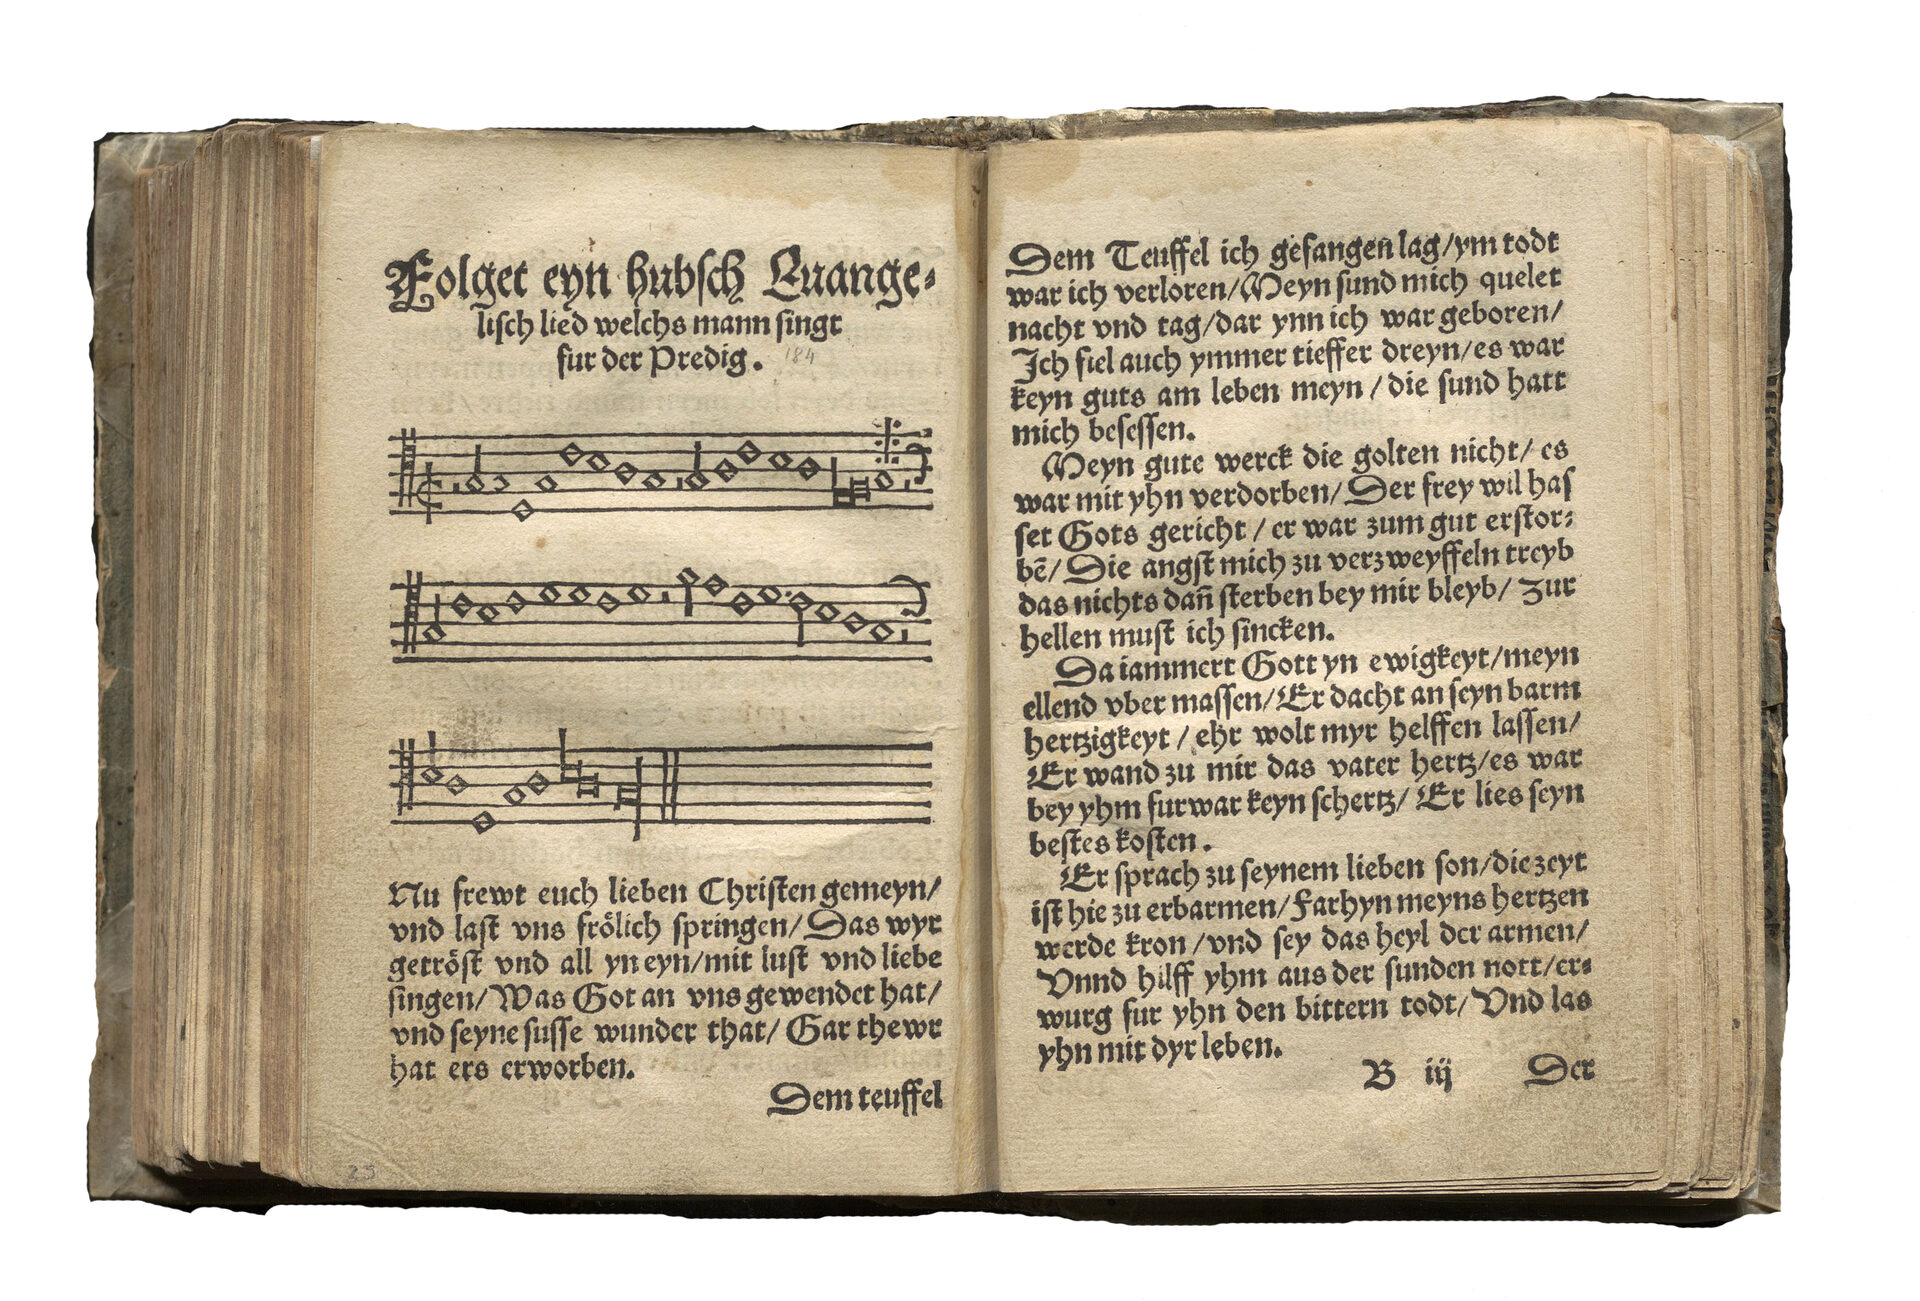 Folget eyn hubsch Euange⸗
lisch lied welchs mann singt
fur der Predig.
184
Nu frewt euch lieben Christen gemeyn/
vnd last vns frölich springen/ Das wyr
getröst vnd all yn eyn/mit lust vnd liebe
singen/ Was Got an vns gewendet hat/
vnd seyne susse wunder that/ Gar thewr
hat ers erworben.
Dem teuffel
23
Dem Teuffel ich gefangen lag/ym todt
war ich verloren/Meyn sund mich quelet
nacht vnd tag/dar ynn ich war geboren/
Ich fiel auch ymmer tieffer dreyn/es war
keyn guts am leben meyn/die sund hatt
mich besessen.
Meyn gute werck die golten nicht/ es
war mit yhn verdorben/ Der frey wil has
set Gots gericht/er war zum gut erstor⸗
bẽ/ Die angst mich zu verzweyffeln treyb
das nichts dañ sterben bey mir bleyb/ zur
hellen must ich sincken.
Da iammert Gott yn ewigkeyt/meyn
ellend vber massen/Er dacht an seyn barm
hertzigkeyt/ehr wolt myr helffen lassen/
Er wand zu mir das vater hertz/es war
bey yhm furwar keyn schertz/ Er lies seyn
bestes kosten.
Er sprach zu seynem lieben son/die zeyt
ist hie zu erbarmen/Farhyn meyns hertzen
werde kron/vnd sey das heyl der armen/
Vnnd hilff yhm aus der sunden nott/er⸗
wurg fur yhn den bittern todt/ Vnd las
yhn mit dyr leben.
B iij Der